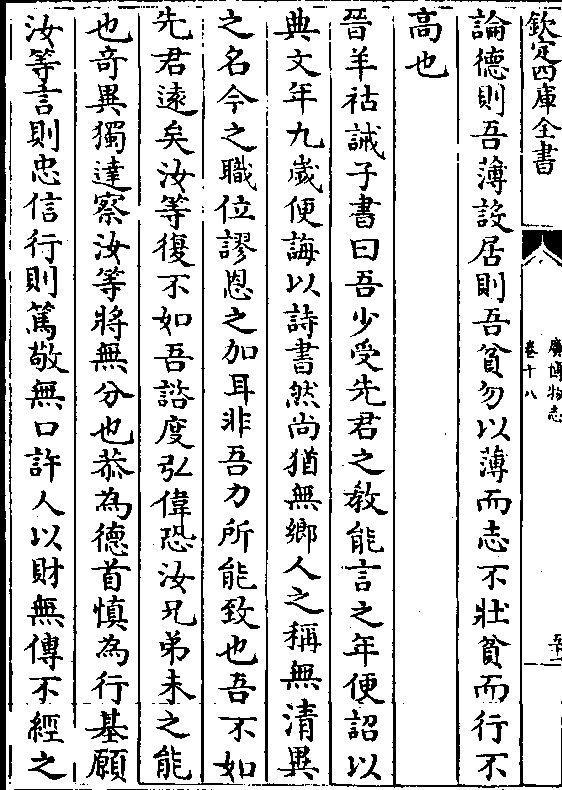 欽定四庫全書
廣博物志
卷十八
論德則吾薄設居則吾貧勿以薄而志不壯貧而行不
高也
晉羊祜誡子書曰吾少受先君之教能言之年便詔以
典文年九歲便誨以詩書然尚猶無鄉人之稱無清異
之名今之職位謬恩之加耳非吾力所能致也吾不如
先君遠矣汝等復不如吾諮度弘偉恐汝兄弟未之能
也奇異獨達察汝等將無分也恭為德首慎為行基願
汝等言則忠信行則篤敬無口許人以財無傳不經之